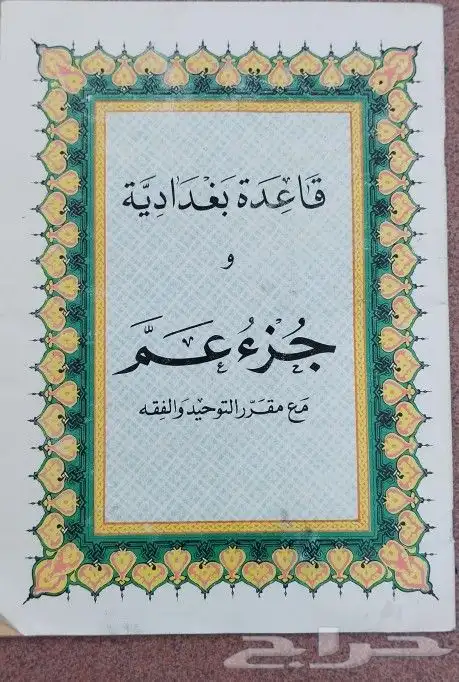 قَاعِدَة بَغْدَادِيَّة
و
جُزْءُ عَمَّ
مَع مقرّر التوحيد والفقه
حراج